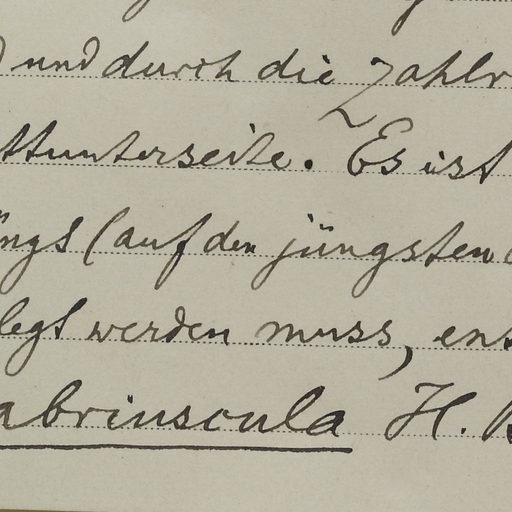 und durch die Zahlr
ttunterseite. Es ist
ngs (auf den jüngsten
legt werden muss, ent
abriuscula H.